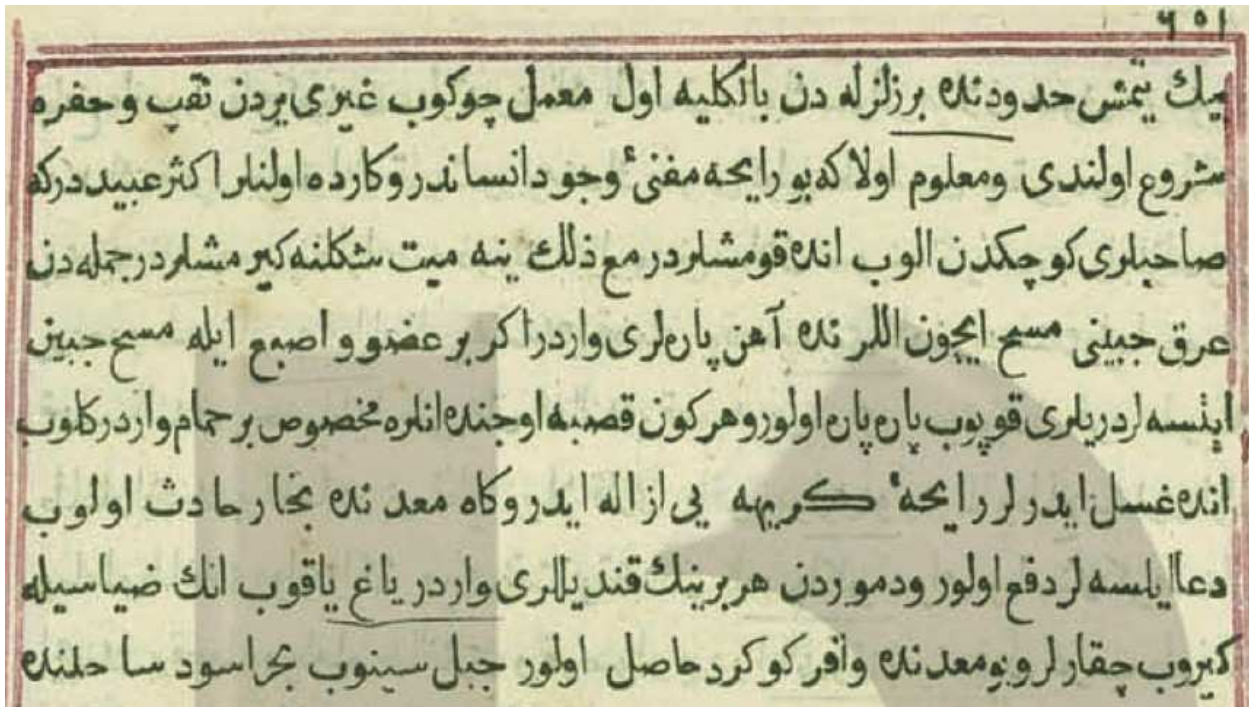 ٦٥١
بيك يتمش حدودنده بر زلزله دن بالكليه اول معمل چوكوب غيرى يردن نقب وحفره
شروع اولندى ومعلوم اولا كه بو رايحه مفنئ وجود انساندر وكارده اولنلر اكثر عبيددركه
صاحبلرى كوچكدن الوب انده قومشلردر مع ذلك ينه ميت شكلنه كيرمشلردر جمله دن
عرق جبينى مسح ايچون اللرنده آهن پاره لرى واردر اكر بر عضو واصبع ايله مسح جبين
ايتسه لر دريلرى قوپوب پاره پاره اولور وهركون قصبه اوجنده انلره مخصوص بر حمام واردر كلوب
انده غسل ايدرلر رايحهٔ كريهه يى ازاله ايدر وكاه معدنده بخار حادث اولوب
دعا ايلسه لر دفع اولور ودموردن هر برينك قنديللرى واردر ياغ ياقوب انك ضياسيله
كيروب چقارلر وبومعدنده وافر كوكرد حاصل اولور جبل سينوب بحر اسود ساحلنده